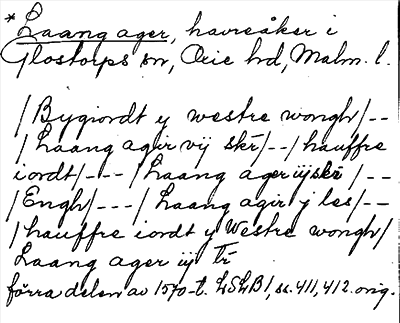 *Laang ager, havreåker i
Glostorps sn, Oxie hd, Malm. l.
/Bygiordt y westre wongh/--
/Laang agir vij skr̄/--/hauffre
iordt/---/Laang ager iij skr̄/--
/Engh/---/Laang agir j les/--/
/hauffre iordt y Westre wongh/
Laang ager iij Tr̄
förra delen av 1570-t. LSLB 1, ss. 411, 412. orig.